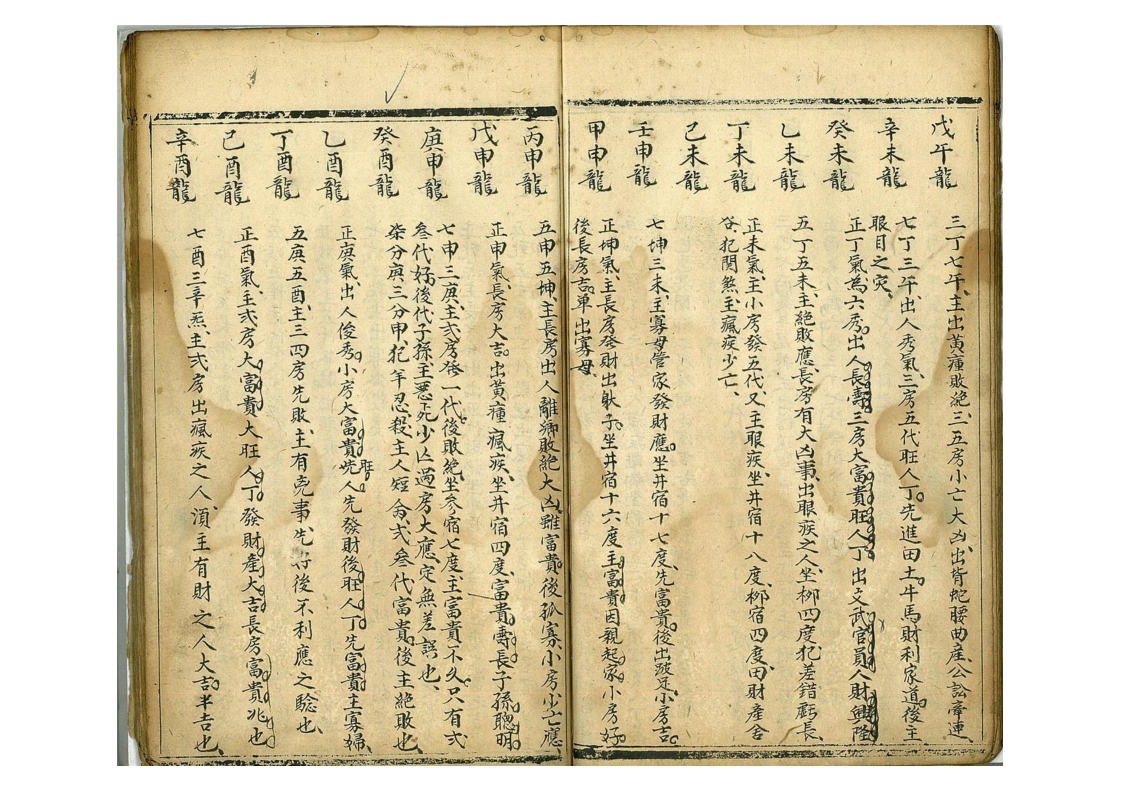 戊午龍
三丁七午、主出黃瘇敗絕、三五房小亡大凶、出背蛇腰曲產、公訟牽連、
辛未龍
七丁三午、出人秀氣、三房五代旺人丁、先進田土牛馬財利家道、後主
眼目之灾、
癸未龍
正丁氣為六秀、出人長壽、三房大富貴旺人丁、出文武官員人財興隆
乙未龍
五丁五未、主絕敗應長房有大凶事、出眼疾之人、坐柳四度犯差錯、虧長
丁未龍
正未氣、主小房發五代、又主眼疾、坐井宿十八度、柳宿四度、田財產舍
名犯関煞、主瘋疾少亡、
己未龍
七坤三未、主寡母管家發財應、坐井宿十七度、先富貴、後出跛足、小房吉
壬申龍
正坤氣、主長房發財出 子、坐井宿十六度、主富貴因親起家、小房好
甲申龍
後長房吉、單出寡母、
丙申龍
五申五坤、主長房出人離鄉敗絕大凶、雖富貴後孤寡、小房少亡應
戊申龍
正申氣、長房大吉、出黃瘇瘋疾、坐井宿四度、富貴壽長、子孫聰明
庚申龍
七申三庚、主弍房發一代、後敗絕、坐參宿七度、主富貴不久、只有弍
叁代好、後代子孫主惡死少亡過房大應、定無差誤也、
癸酉龍
柒分庚三分申、犯年忍殺、主人短命、弍叁代富貴、後主絕敗也、
乙酉龍
正庚氣、出人俊秀、小房大富貴先旺人、先發財後旺人丁、先富貴主寡婦、
丁酉龍
五庚五酉、主三四房先敗、主有 事、先好後不利、應之驗也
己酉龍
正酉氣、主弍房大富貴、大旺人丁、發財產大吉、長房富貴兆也
辛酉龍
七酉三辛氣、主弍房出瘋疾之人、須主有財之人大吉、半吉也、